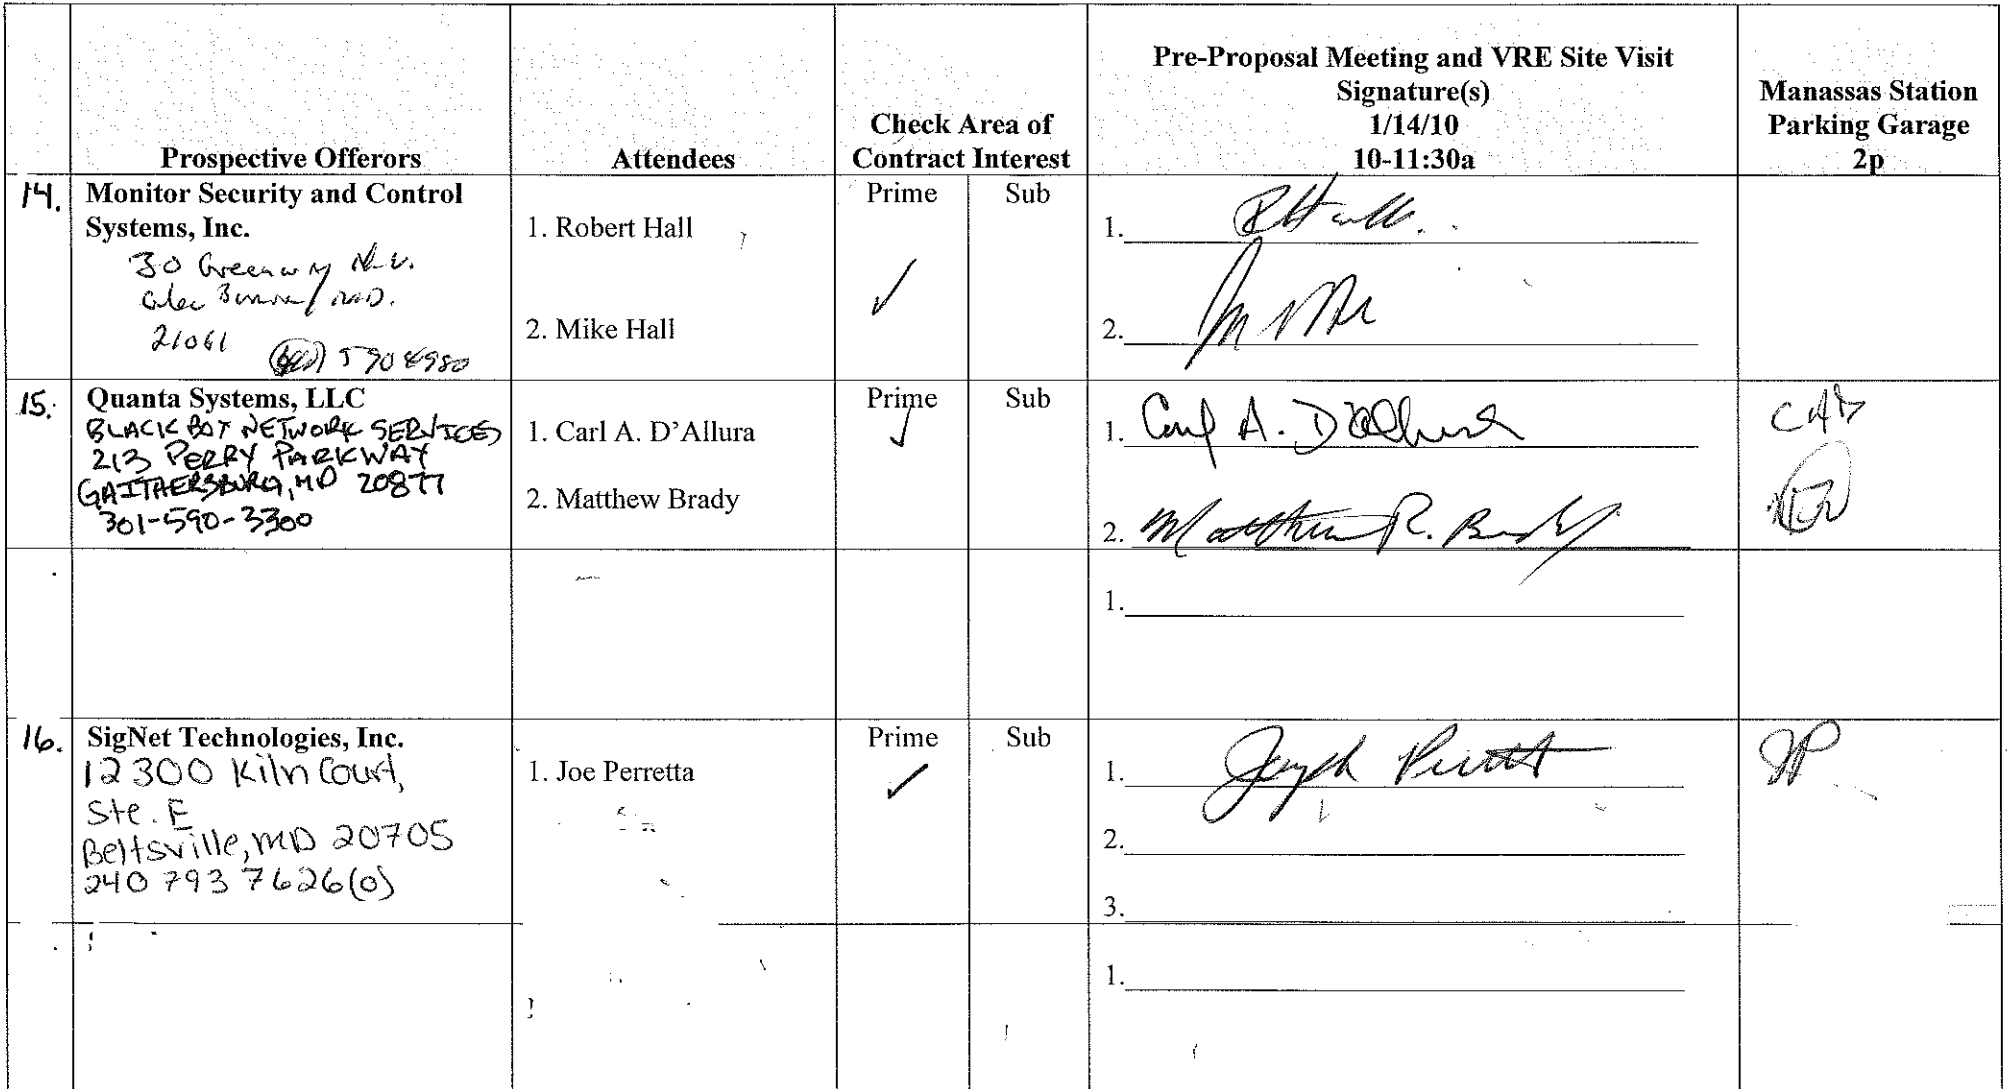 Prospective Offerors
Attendees
Check Area of
Contract Interest
Pre-Proposal Meeting and VRE Site Visit
Signature(s)
1/14/10
10-11:30a
Manassas Station
Parking Garage
2p
14.
Monitor Security and Control
Systems, Inc.
30 Greenway N.W.
Glen Burnie, MD.
21061
590 4980
1. Robert Hall
2. Mike Hall
Prime
Sub
✓
1.
2.
15.
Quanta Systems, LLC
BLACK BOX NETWORK SERVICES
213 PERRY PARKWAY
GAITHERSBURG, MD 20877
301-590-3300
1. Carl A. D'Allura
2. Matthew Brady
Prime
Sub
✓
1. Carl A. D'Allura
2. Matthew R. Brady
CAD
1.
16.
SigNet Technologies, Inc.
12300 Kiln Court,
Ste. E
Beltsville, MD 20705
240 793 7626(o)
1. Joe Perretta
Prime
Sub
✓
1. Joseph Perretta
2.
3.
JP
1.